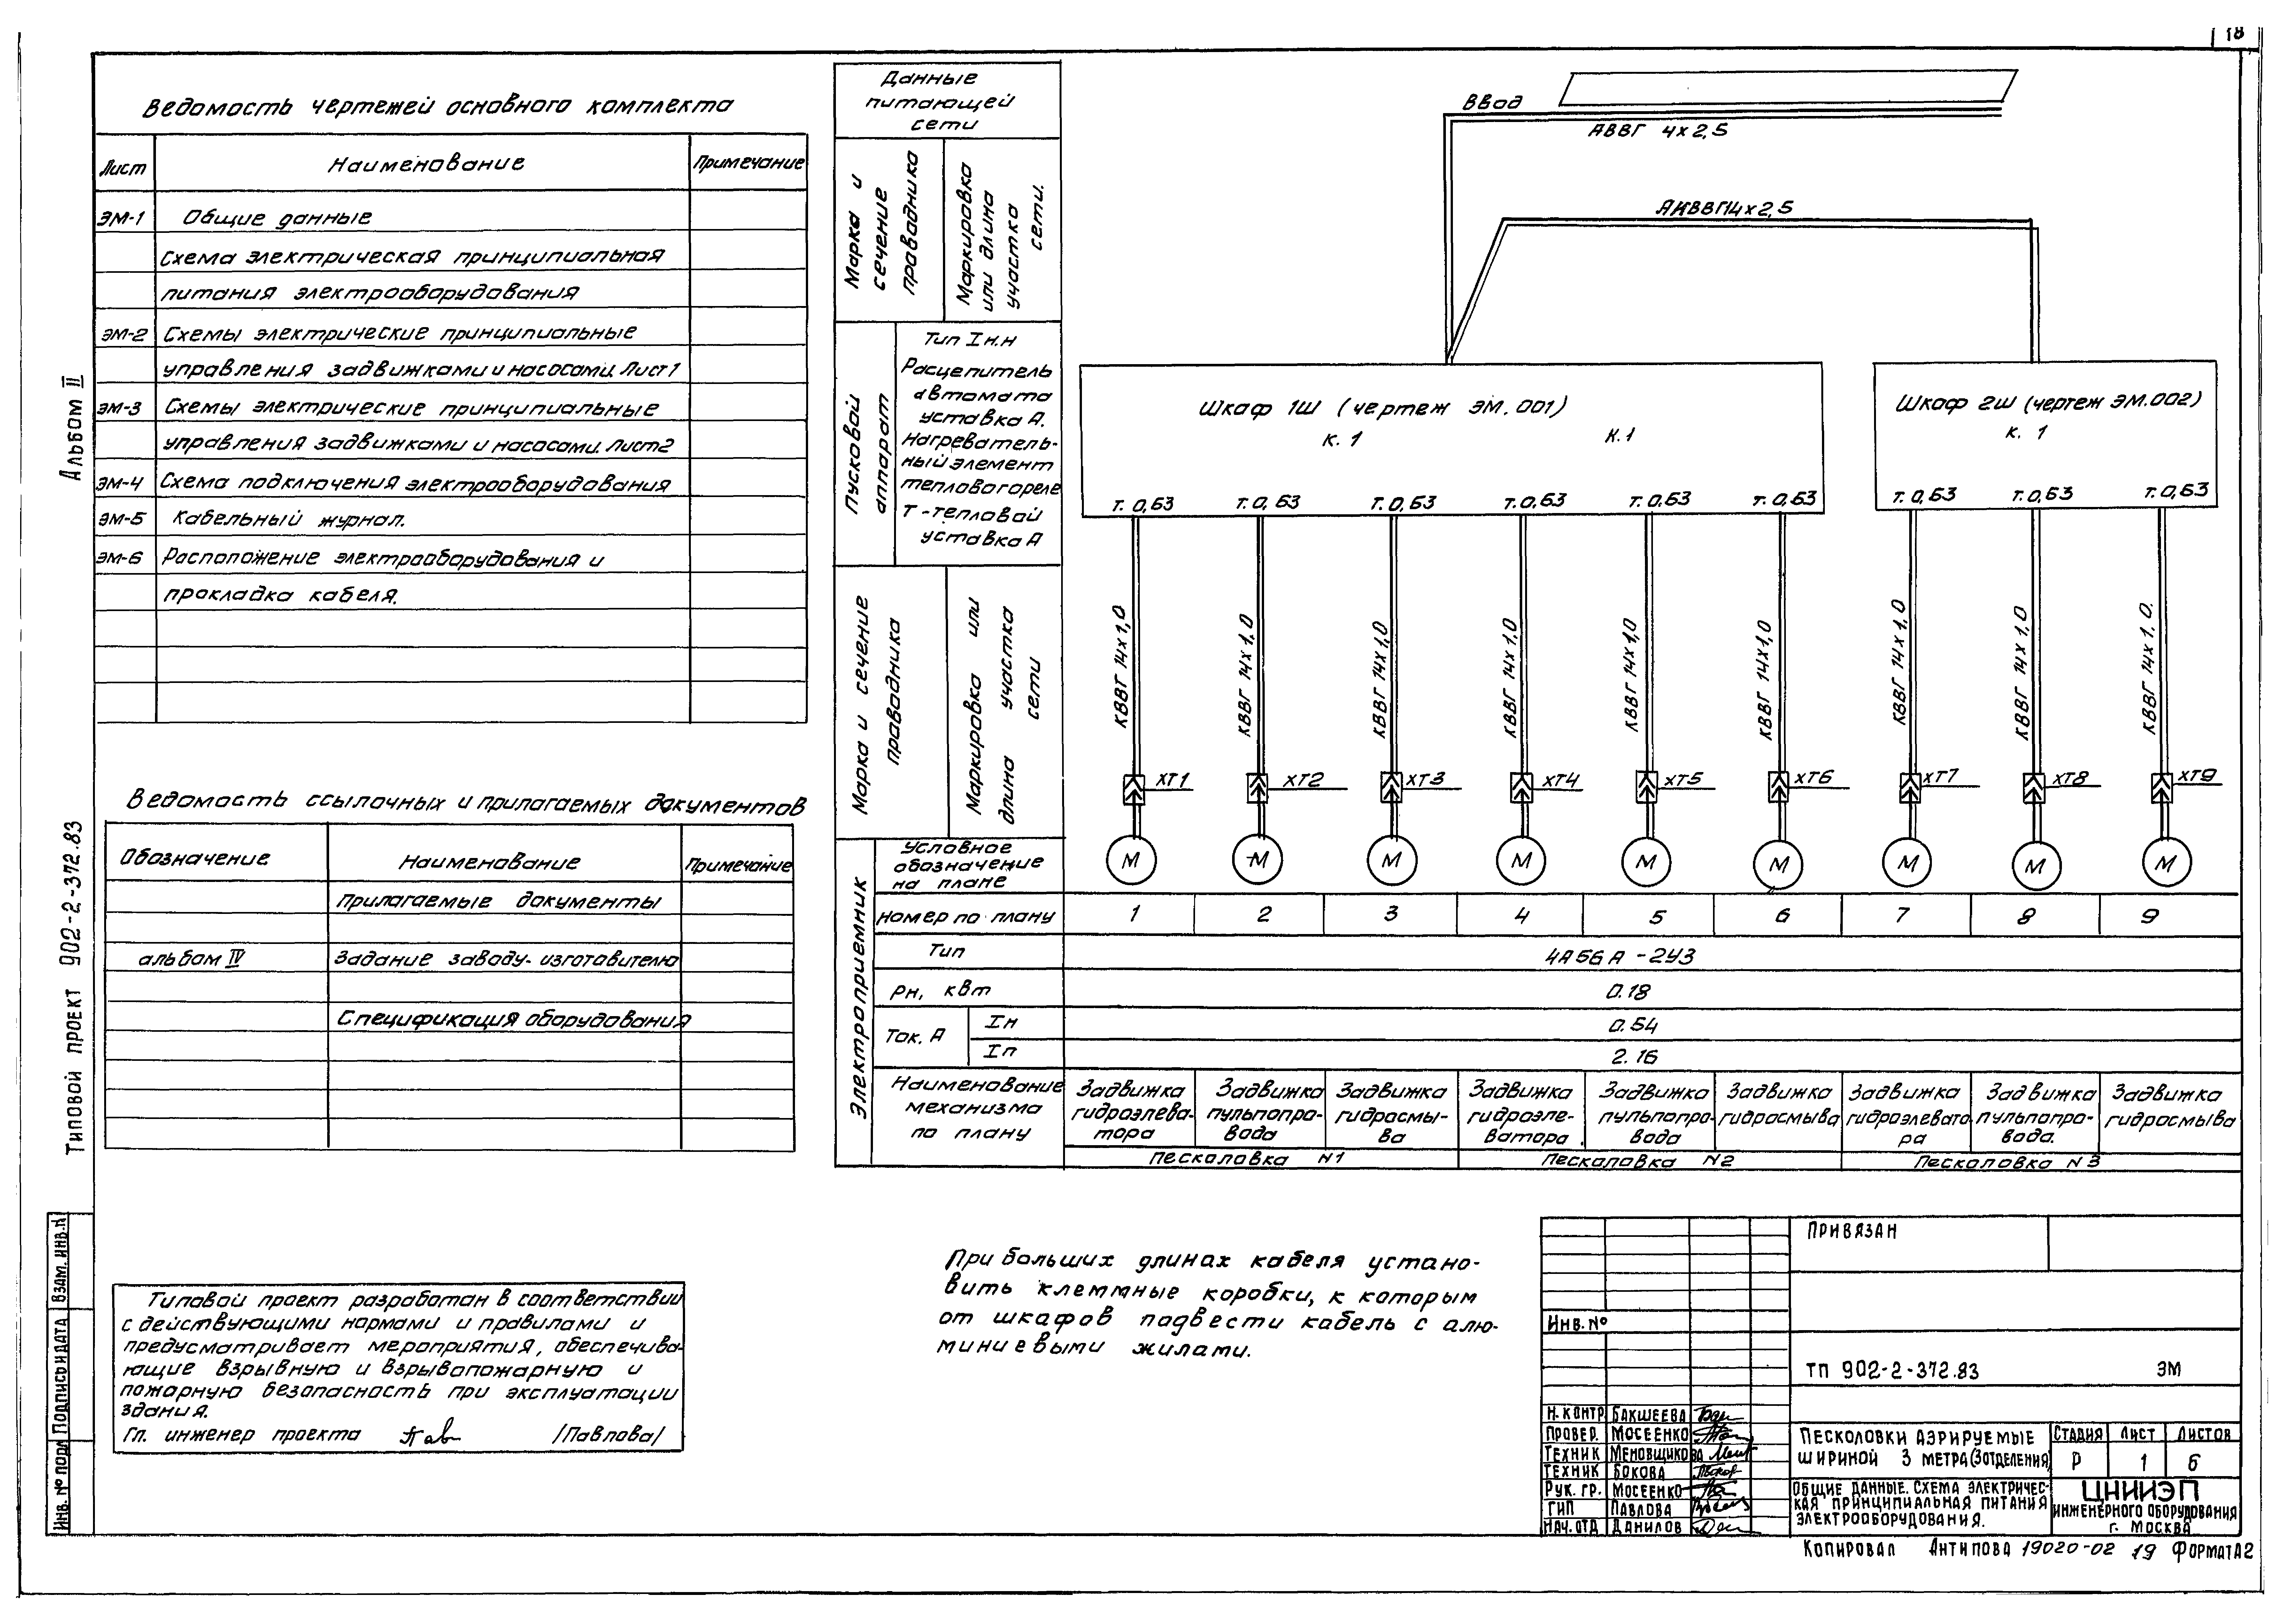 18
Альбом II
Типовой проект 902-2-372.83
Взам. инв. N
Подпись и дата
Инв. № подл
Ведомость чертежей основного комплекта
Лист Наименование Примечание
ЭМ-1 Общие данные
Схема электрическая принципиальная
питания электрооборудования
ЭМ-2 Схемы электрические принципиальные
управления задвижками и насосами. Лист 1
ЭМ-3 Схемы электрические принципиальные
управления задвижками и насосами. Лист 2
ЭМ-4 Схема подключения электрооборудования
ЭМ-5 Кабельный журнал.
ЭМ-6 Расположение электрооборудования и
прокладка кабеля.
Ведомость ссылочных и прилагаемых документов
Обозначение Наименование Примечание
Прилагаемые документы
альбом IV Задание заводу-изготовителю
Спецификация оборудования
Типовой проект разработан в соответствии
с действующими нормами и правилами и
предусматривает мероприятия, обеспечива-
ющие взрывную и взрывопожарную и
пожарную безопасность при эксплуатации
здания.
Гл. инженер проекта Пав /Павлова/
Данные
питающей
сети
Марка и
сечение
проводника
Маркировка
или длина
участка
сети.
Пусковой
аппарат
Тип Iн.н
Расцепитель
автомата
уставка А.
Нагреватель-
ный элемент
теплового реле
Т-тепловой
уставка А
Марка и сечение
проводника
Маркировка или
длина участка
сети
Электроприемник
Условное
обозначение
на плане
Номер по плану
Тип
Рн, квт
Ток. А
Iн
Iп
Наименование
механизма
по плану
Ввод
АВВГ 4х2,5
АКВВГ14х2,5
Шкаф 1Ш (чертеж ЭМ.001)
К. 1 К.1
Шкаф 2Ш (чертеж ЭМ.002)
К. 1
Т. 0,63 Т. 0,63 Т. 0,63 Т. 0,63 Т. 0,63 Т. 0,63 Т. 0,63 Т. 0,63 Т. 0,63
КВВГ 14х1,0 КВВГ 14х1,0 КВВГ 14х1,0 КВВГ 14х1,0 КВВГ 14х1,0 КВВГ 14х1,0 КВВГ 14х1,0 КВВГ 14х1,0 КВВГ 14х1,0.
ХТ1 ХТ2 ХТ3 ХТ4 ХТ5 ХТ6 ХТ7 ХТ8 ХТ9
М М М М М М М М М
1 2 3 4 5 6 7 8 9
4А56А-2У3
0.18
0.54
2.16
Задвижка Задвижка Задвижка Задвижка Задвижка Задвижка Задвижка Задвижка Задвижка
гидроэлева- пульпопро- гидросмы- гидроэле- пульпопро- гидросмыва гидроэлевато- пульпопро- гидросмыва
тора вода ва ватора. вода ра вода.
Песколовка N1 Песколовка N2 Песколовка N3
При больших длинах кабеля устано-
вить клеммные коробки, к которым
от шкафов подвести кабель с алю-
миниевыми жилами.
Привязан
Инв. №
ТП 902-2-372.83 ЭМ
Н. контр. Бакшеева
Провер. Мосеенко
Техник Меновщикова
Техник Бокова
Рук. гр. Мосеенко
ГИП Павлова
Нач. отд Данилов
Песколовки аэрируемые
шириной 3 метра (3 отделения)
Стадия Лист Листов
Р 1 6
Общие данные. Схема электричес-
кая принципиальная питания
электрооборудования.
ЦНИИЭП
инженерного оборудования
г. Москва
Копировал Антипова 19020-02 19 Формат А2